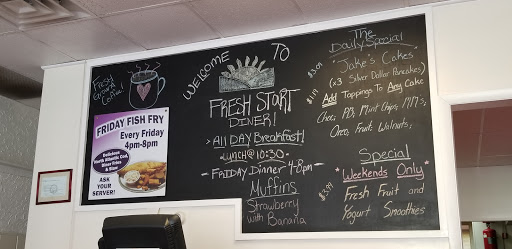 Fresh
Ground
Coffee!
FRIDAY FISH FRY
Every Friday
4pm-8pm
Delicious
North Atlantic Cod,
Diner Fries
& Slaw
ASK
YOUR
SERVER!
WELCOME TO
FRESH START
DINER!
> All DAY Breakfast!
LUNCH @ 10:30
- FRIDAY Dinner 4-8pm -
Muffins
Strawberry
with Banana
The
Daily Special
$3.09 "Jake's Cakes"
(x3 Silver Dollar Pancakes)
$1.19 Add Toppings To Any Cake
Choc, PB, Mint Chips, M+M's,
Oreo, Fruit, Walnuts,
Special
*Weekends Only*
$3.99 Fresh Fruit and
Yogurt Smoothies